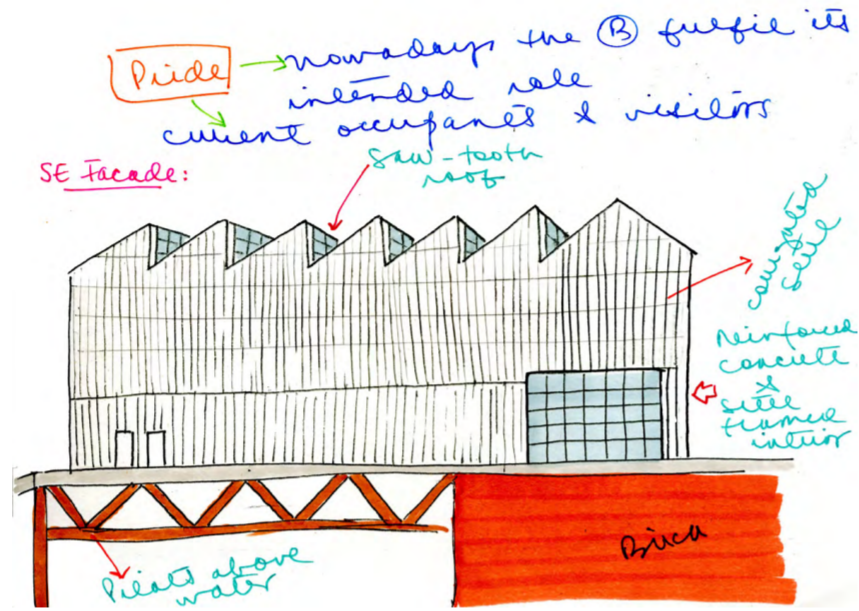 Pride → nowadays the Ⓑ fulfil its
intended role
current occupants & visitors
SE Facade:
saw-tooth
roof
corrugated
steel
reinforced
concrete
&
steel
framed
interior
Brick
Pilots above
water